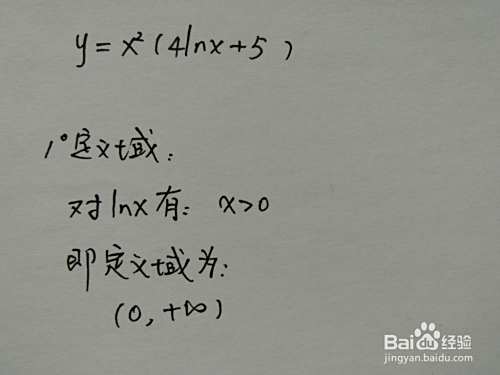 y=x²(4lnx+5)
1°定义域:
对lnx有: x>0
即定义域为:
(0,+∞)
Baidu经验
jingyan.baidu.com